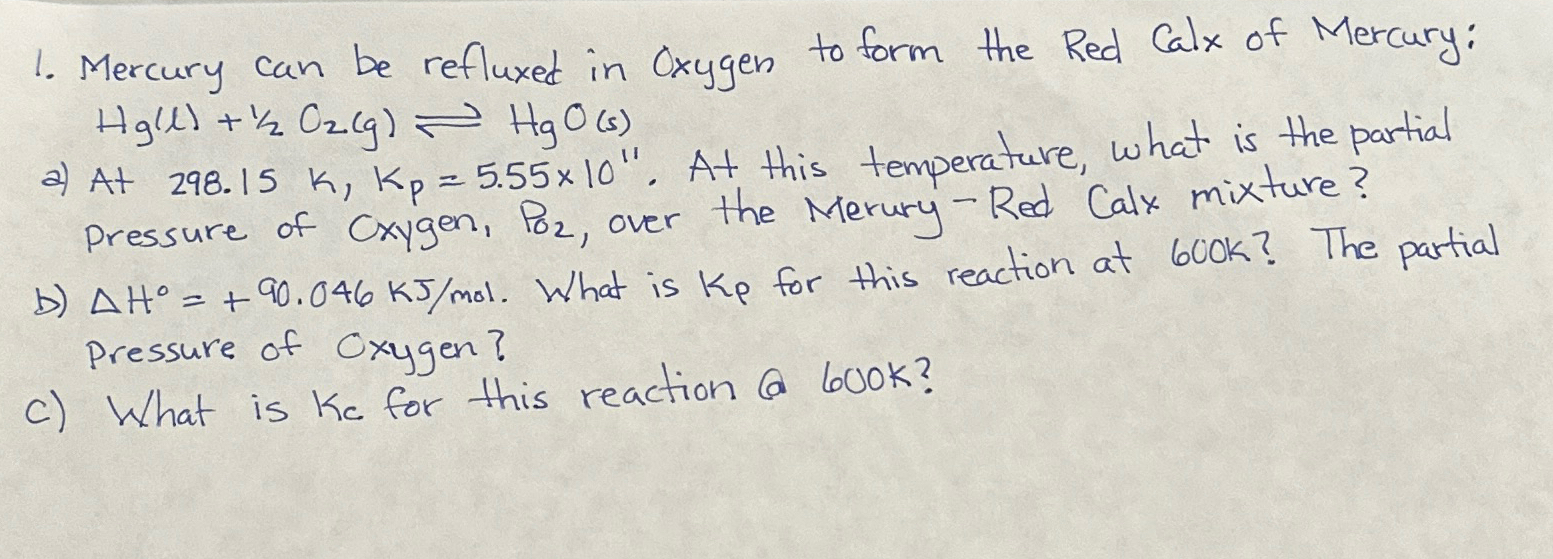 1. Mercury can be refluxed in Oxygen to form the Red Calx of Mercury:
Hg(l) + ½ O₂(g) ⇌ HgO(s)
a) At 298.15 K, Kp = 5.55 x 10¹¹. At this temperature, what is the partial
Pressure of Oxygen, Po₂, over the Merury - Red Calx mixture?
b) ΔH° = +90.046 KJ/mol. What is Kp for this reaction at 600K? The partial
Pressure of Oxygen?
c) What is Kc for this reaction @ 600K?